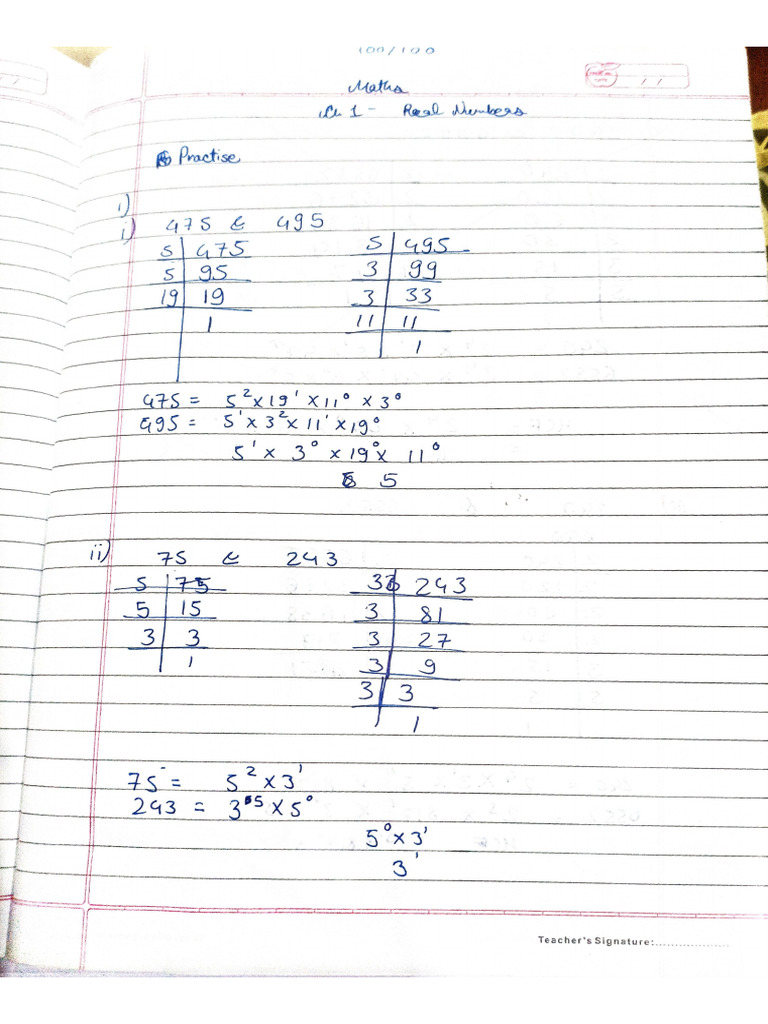 100/100
Maths
Ch 1 - Real Numbers
Practise
i)
i) 475 & 495
5 | 475    5 | 495
5 | 95    3 | 99
19 | 19    3 | 33
| 1    11 | 11
| 1
475 = 5² x 19¹ x 11⁰ x 3⁰
495 = 5¹ x 3² x 11¹ x 19⁰
5¹ x 3⁰ x 19⁰ x 11⁰
5
ii) 75 & 243
5 | 75    3 | 243
5 | 15    3 | 81
3 | 3    3 | 27
| 1    3 | 9
3 | 3
| 1
75 = 5² x 3¹
243 = 3⁵ x 5⁰
5⁰ x 3¹
3¹
Teacher's Signature:...................